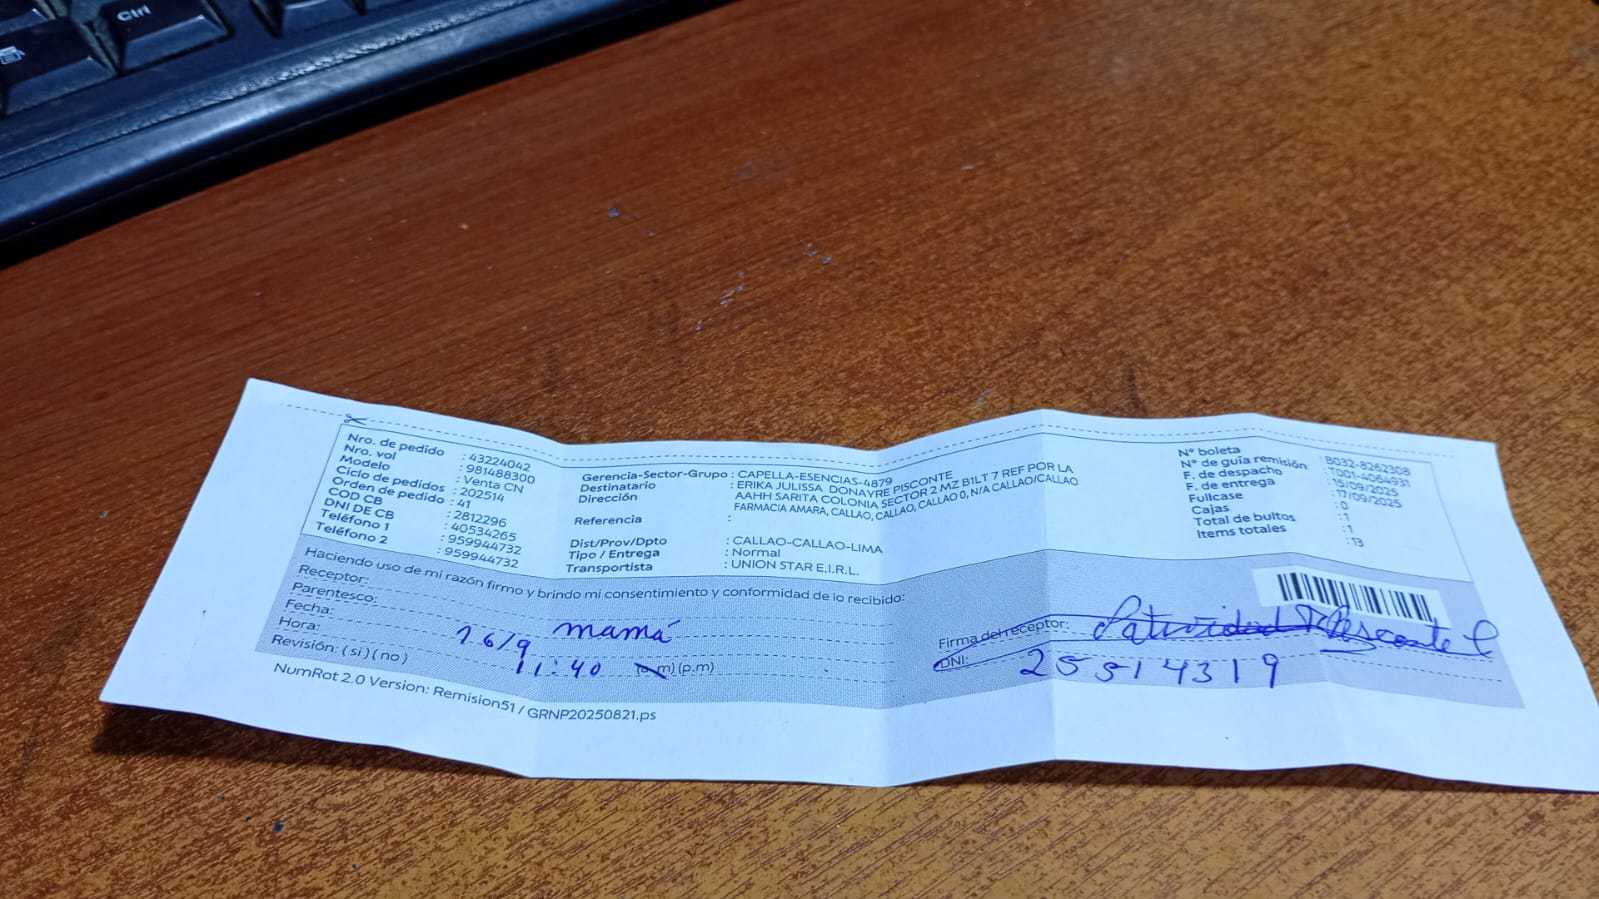 Ctrl
Nro. de pedido : 43224042
Nro. vol : 981488300
Modelo : Venta CN
Ciclo de pedidos : 202514
Orden de pedido : 41
COD CB : 2812296
DNI DE CB : 40534265
Teléfono 1 : 959944732
Teléfono 2 : 959944732
Gerencia-Sector-Grupo : CAPELLA-ESENCIAS-4879
Destinatario : ERIKA JULISSA DONAYRE PISCONTE
Dirección : AAHH SARITA COLONIA SECTOR 2 MZ B1LT 7 REF POR LA
FARMACIA AMARA, CALLAO, CALLAO, CALLAO 0, N/A CALLAO/CALLAO
Referencia :
Dist/Prov/Dpto : CALLAO-CALLAO-LIMA
Tipo / Entrega : Normal
Transportista : UNION STAR E.I.R.L.
N° boleta : B032-8262308
N° de guía remisión : T001-4064931
F. de despacho : 15/09/2025
F. de entrega : 17/09/2025
Fullcase : 0
Cajas : 1
Total de bultos : 1
Items totales : 13
Haciendo uso de mi razón firmo y brindo mi consentimiento y conformidad de lo recibido:
Receptor:
Parentesco: mamá
Fecha: 16/9
Hora: 11:40 (a.m) (p.m)
Revisión: ( si ) ( no )
Firma del receptor:
DNI: 25514319
NumRot 2.0 Version: Remision51 / GRNP20250821.ps